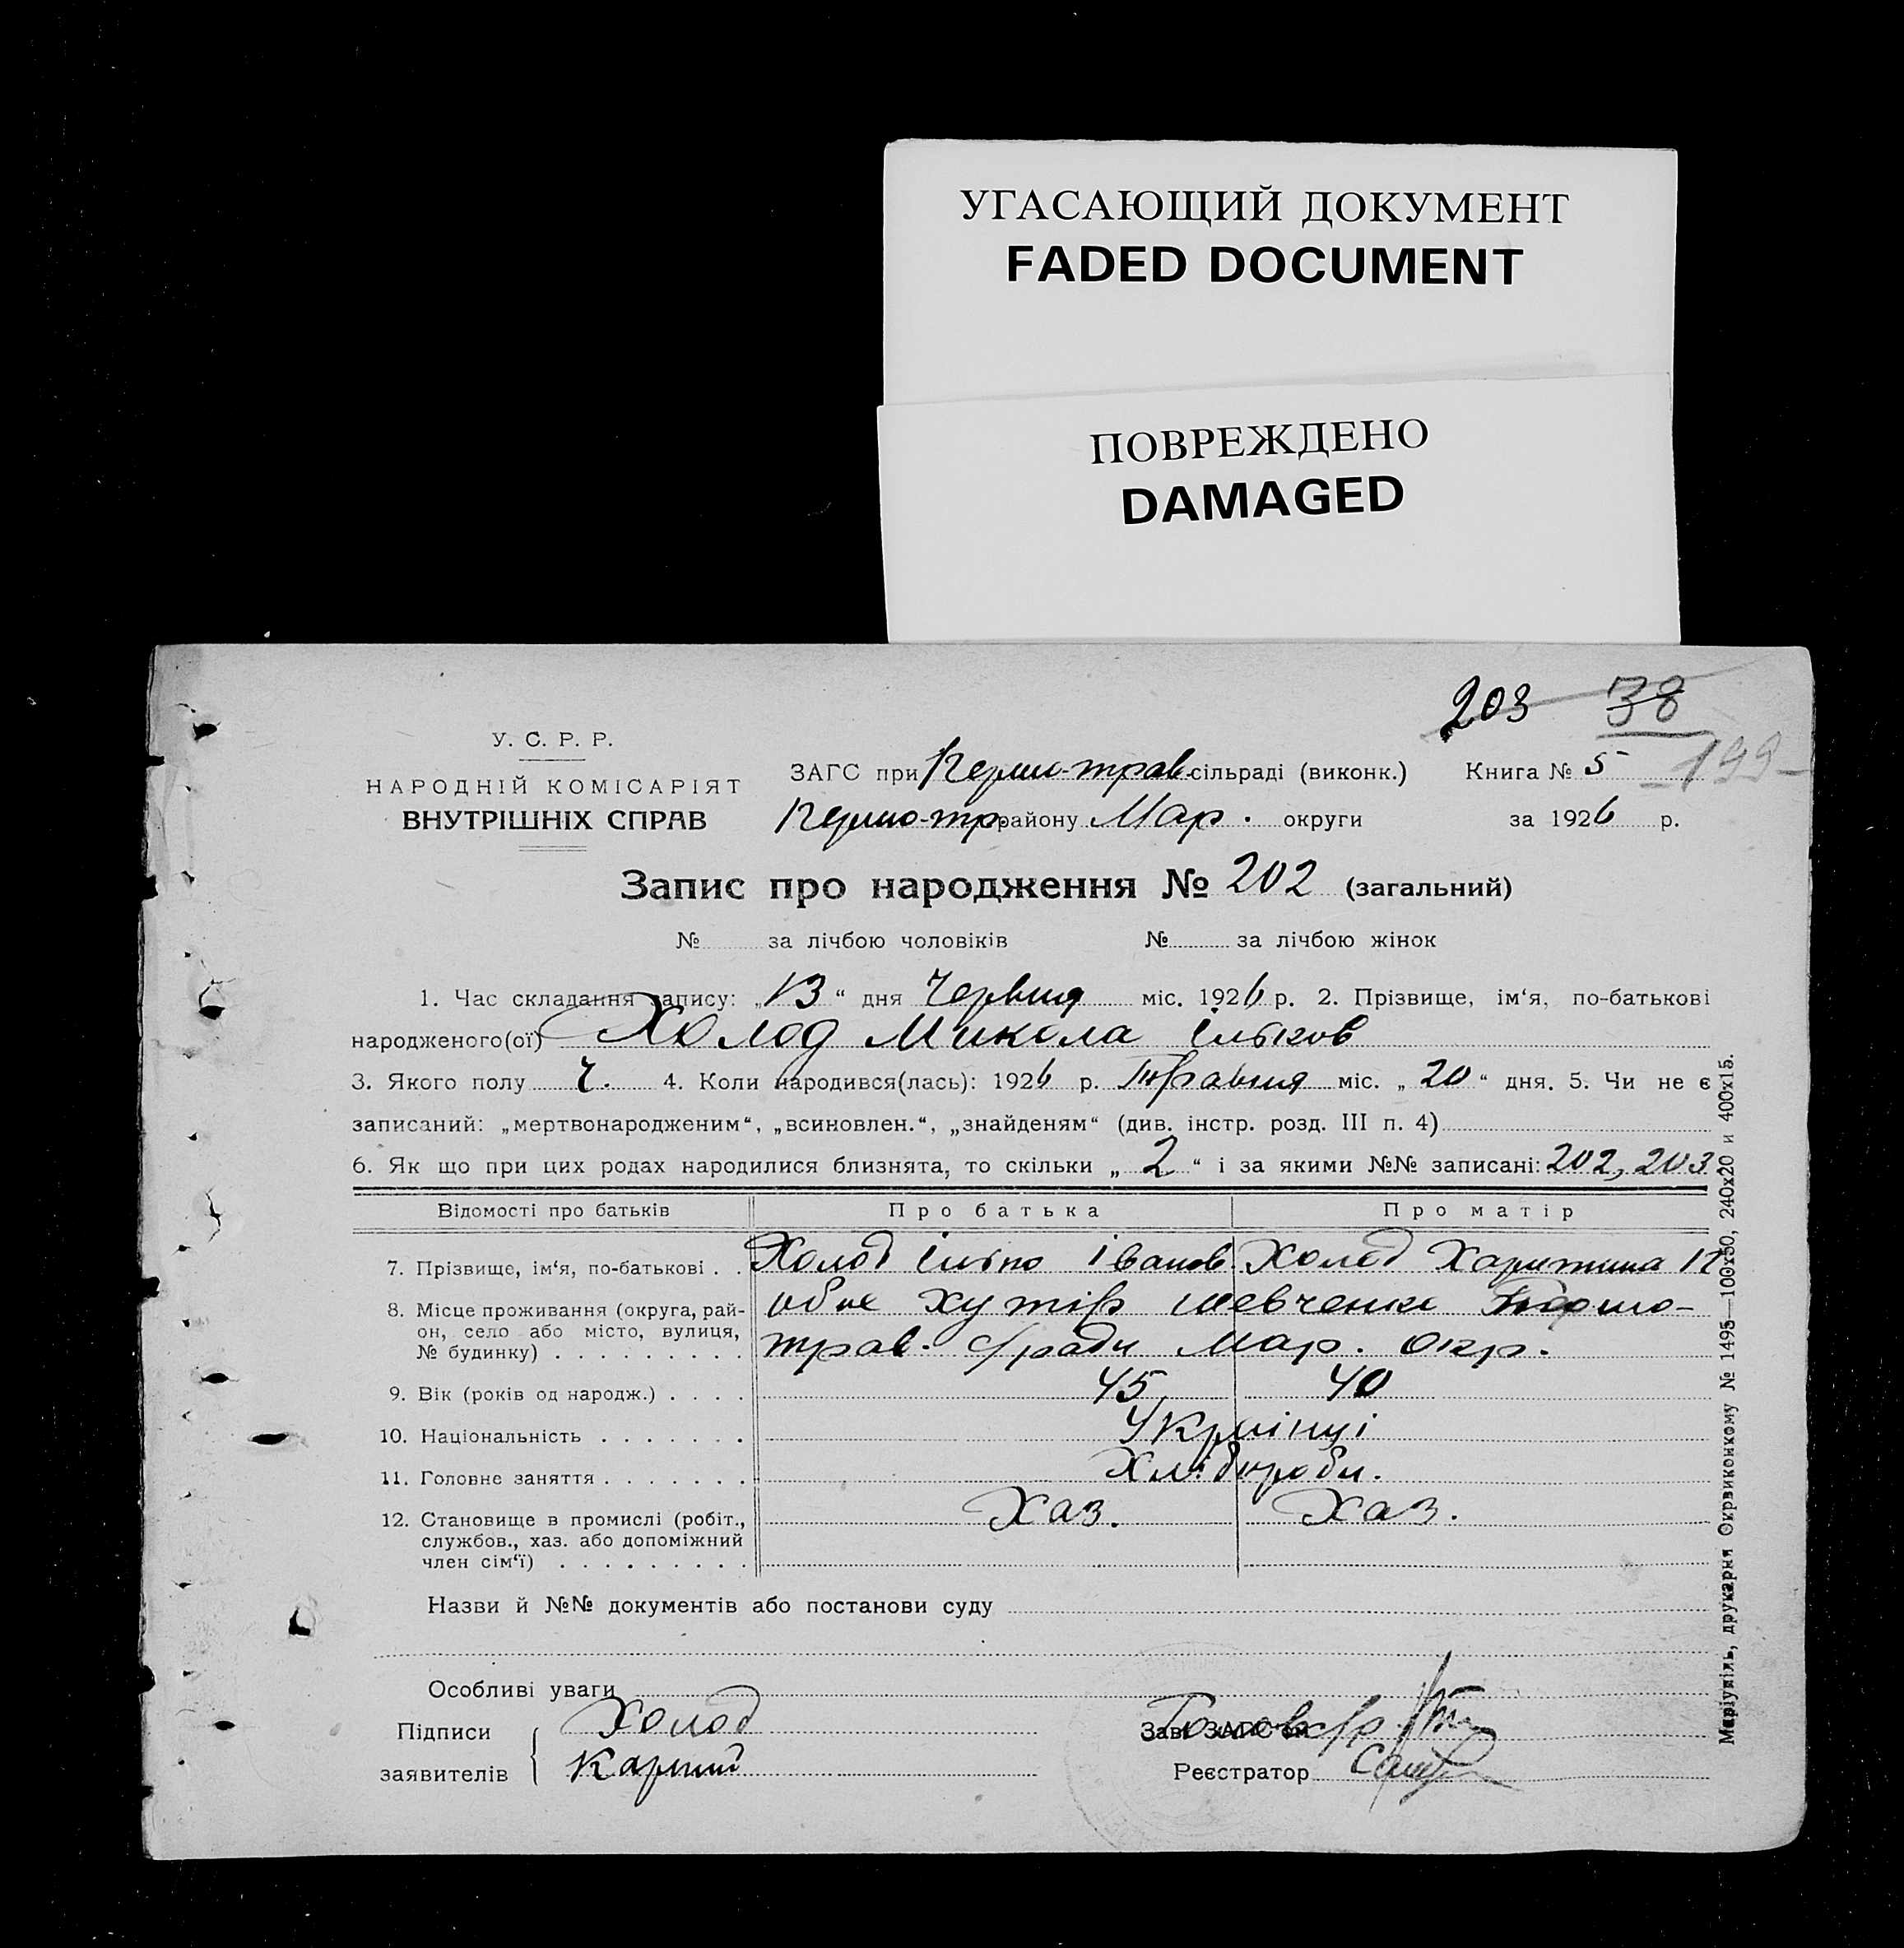 УГАСАЮЩИЙ ДОКУМЕНТ
FADED DOCUMENT
ПОВРЕЖДЕНО
DAMAGED
203 38
199
У. С. Р. Р.
НАРОДНІЙ КОМІСАРІЯТ
ВНУТРІШНІХ СПРАВ
ЗАГС при Першо-трав. сільраді (виконк.) Книга № 5
Першо-тр. району Мар. округи за 1926 р.
Запис про народження № 202 (загальний)
№ за лічбою чоловіків № за лічбою жінок
1. Час складання запису: „13“ дня Червня міс. 1926 р. 2. Прізвище, ім‘я, по-батькові
народженого(ої) Холод Микола Ільков
3. Якого полу Ч. 4. Коли народився(лась): 1926 р. Травня міс. „20“ дня. 5. Чи не є
записаний: „мертвонародженим“, „всиновлен.“, „знайденям“ (див. інстр. розд. III п. 4)
6. Як що при цих родах народилися близнята, то скільки „2“ і за якими №№ записані: 202, 203
Відомості про батьків Про батька Про матір
7. Прізвище, ім‘я, по-батькові . . Холод Ілько Іванов. Холод Харитина
8. Місце проживання (округа, рай-
он, село або місто, вулиця,
№ будинку) . . . . . . . . .
обоє хутір Шевченка Першо-
трав. с/ради Мар. окр.
9. Вік (років од народж.) . . . . 45 40
10. Національність . . . . . . . Українці
11. Головне заняття . . . . . . . Хлібороби.
12. Становище в промислі (робіт.,
службов., хаз. або допоміжний
член сім‘ї) . . . . . . . . .
Хаз. Хаз.
Назви й №№ документів або постанови суду
Особливі уваги
Підписи Холод
заявителів Карпий
Зав. ЗАГС‘ом Голова с/р
Реєстратор
Маріупіль, друкарня Окрвиконкому № 1495—100х50, 240х20 и 400х15.